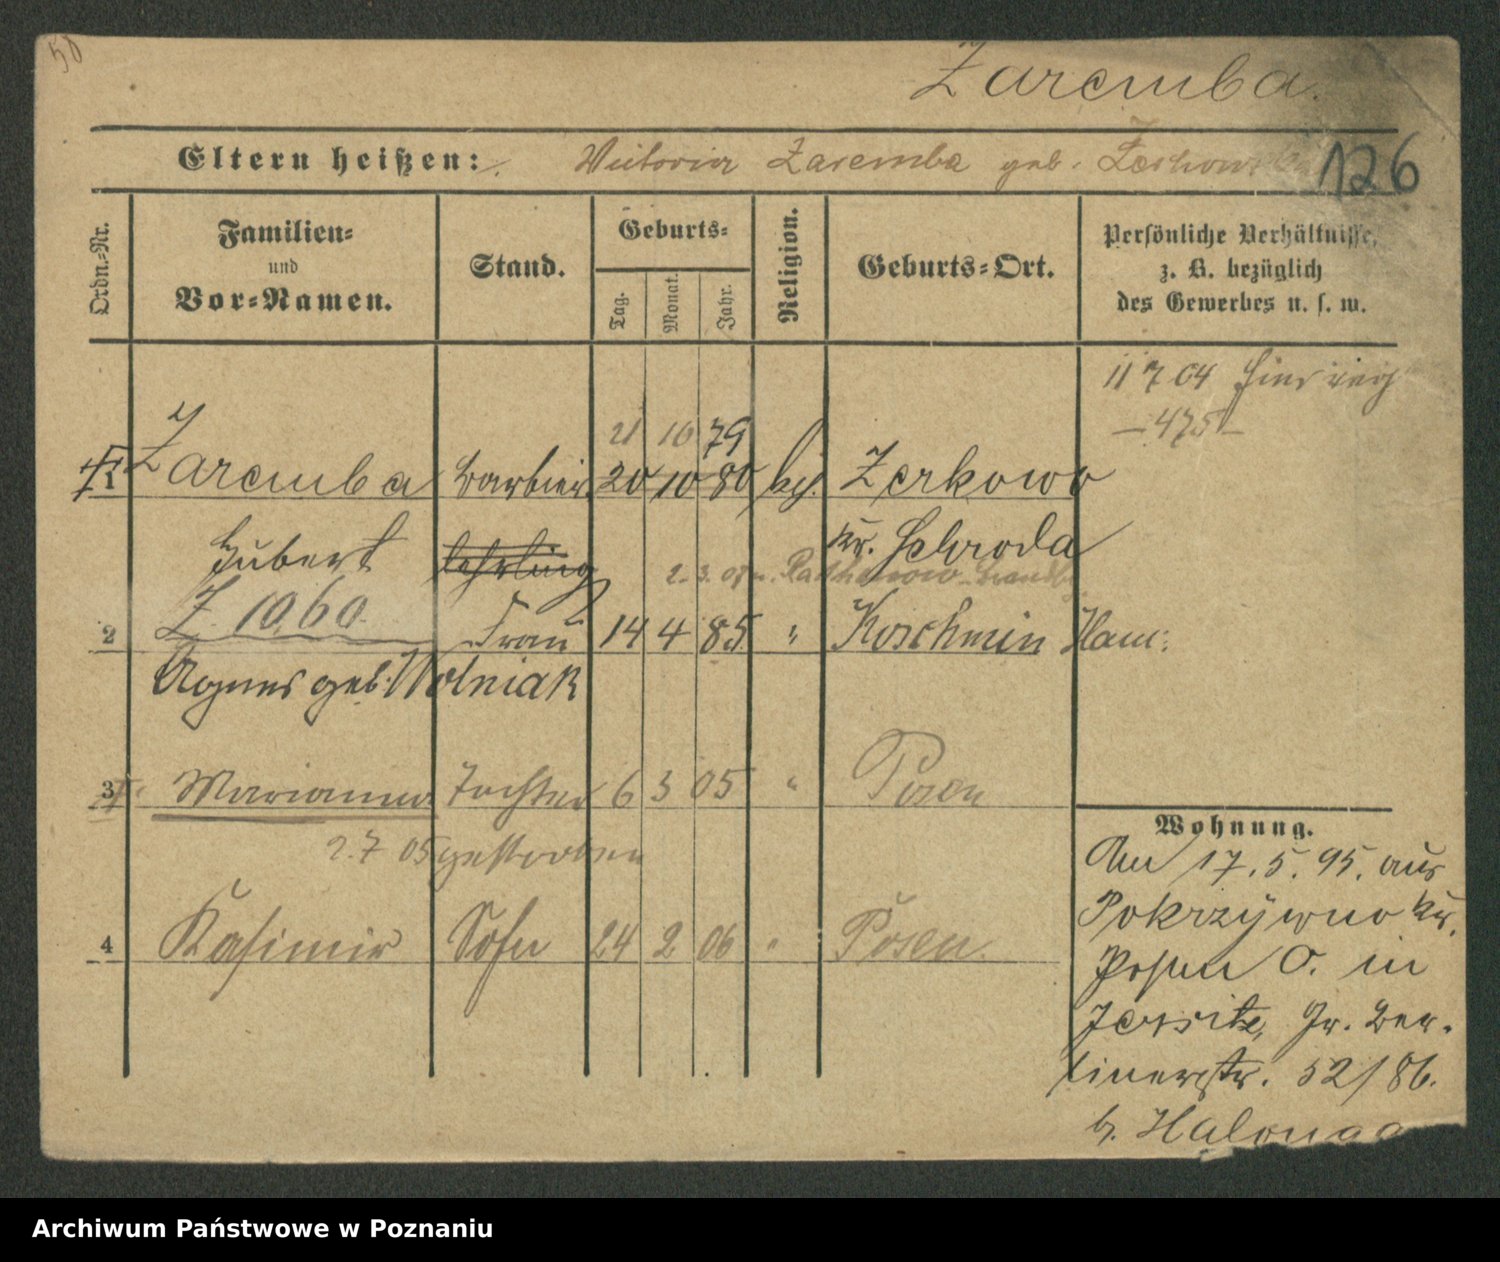 50
Zaremba.
Eltern heißen: Victoria Zaremba geb.
126
Ordn.-Nr.
Familien-
und
Vor-Namen.
Stand.
Geburts-
Tag.
Monat.
Jahr.
Religion.
Geburts-Ort.
Persönliche Verhältnisse,
z. B. bezüglich
des Gewerbes u. s. w.
11 7 04
— 475 —
21 10 79
1 Zaremba Barbier 20 10 80 kth. Zerkowo
Hubert lehrling Kr. Schroda
2. 3. 07 n. Rathenow
Z. 1060.
2 Frau 14 4 85 " Koschmin Hau:
Agnes geb. Wolniak
3 Marianna Tochter 6 3 05 " Posen
2. 7 05 gestorben
4 Kasimir Sohn 24 2 06 " Posen.
Wohnung.
Am 17. 5. 95. aus
Pokrzywno Kr.
Posen O. in
Jersitz, Gr. Ber-
linerstr. 52/86.
b.
Archiwum Państwowe w Poznaniu